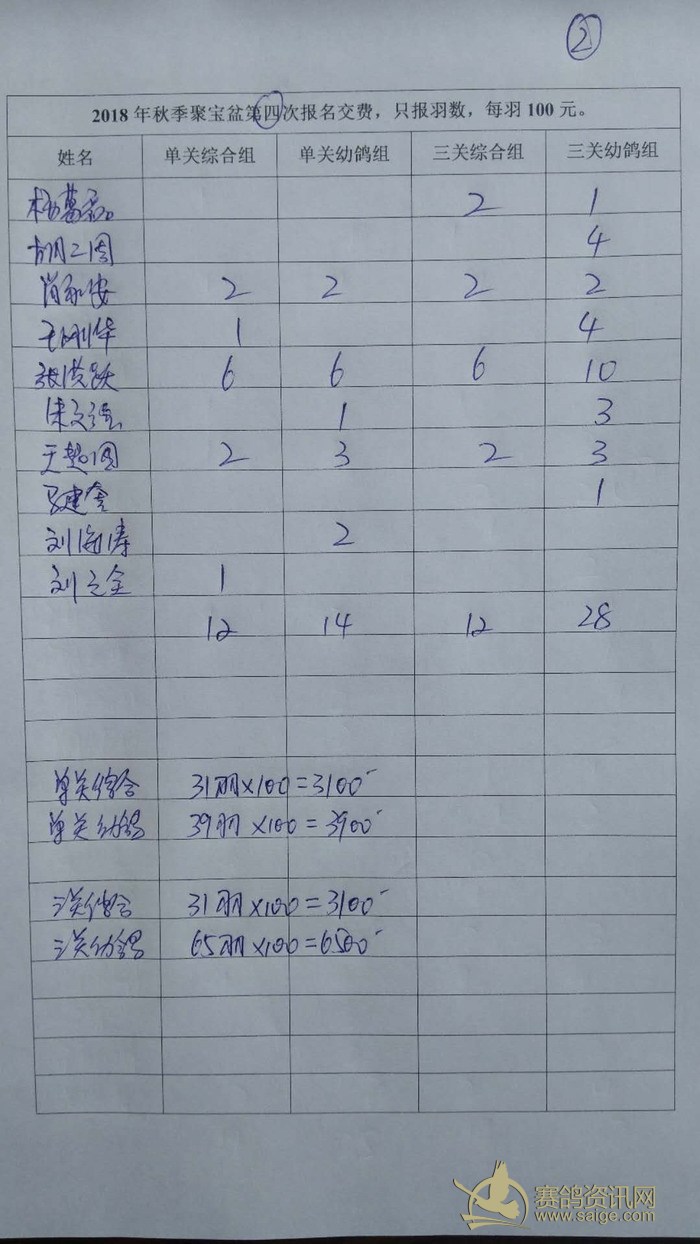 ②
2018年秋季聚宝盆第四次报名交费，只报羽数，每羽100元。
姓名 单关综合组 单关幼鸽组 三关综合组 三关幼鸽组
2 1
胡二周 4
肖家安 2 2 2 2
王刚华 1 4
张洪跃 6 6 6 10
宋文 1 3
王超 2 3 2 3
建 1
刘海涛 2
刘立全 1
12 14 12 28
单关综合 31羽×100=3100
单关幼鸽 39羽×100=3900
三关综合 31羽×100=3100
三关幼鸽 65羽×100=6500
赛鸽资讯网
www.saige.com